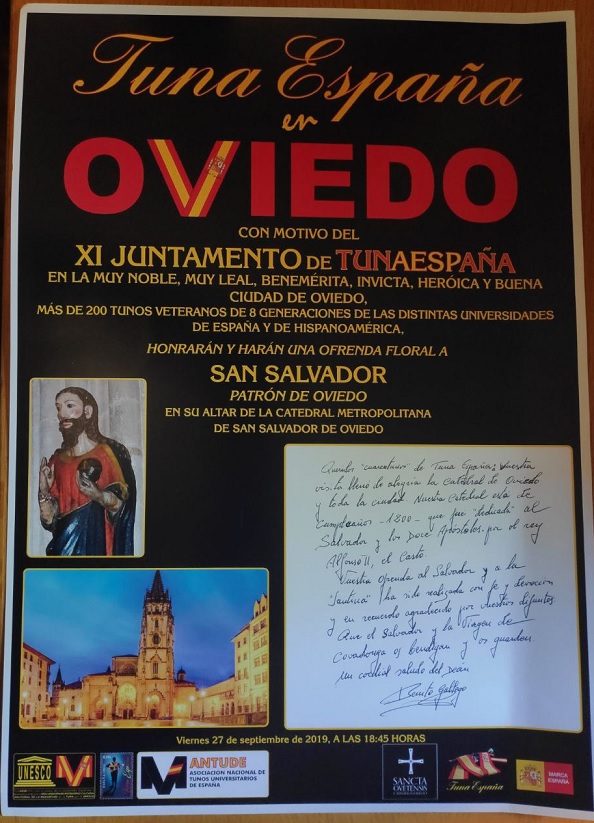 Tuna España
en
OVIEDO
CON MOTIVO DEL
XI JUNTAMENTO DE TUNAESPAÑA
EN LA MUY NOBLE, MUY LEAL, BENEMÉRITA, INVICTA, HERÓICA Y BUENA
CIUDAD DE OVIEDO,
MÁS DE 200 TUNOS VETERANOS DE 8 GENERACIONES DE LAS DISTINTAS UNIVERSIDADES
DE ESPAÑA Y DE HISPANOAMÉRICA,
HONRARÁN Y HARÁN UNA OFRENDA FLORAL A
SAN SALVADOR
PATRÓN DE OVIEDO
EN SU ALTAR DE LA CATEDRAL METROPOLITANA
DE SAN SALVADOR DE OVIEDO
Queridos "cuarentunos" de Tuna España: Vuestra
visita llena de alegría la Catedral de Oviedo
y toda la ciudad. Nuestra Catedral está de
cumpleaños -1200- que fue "dedicada" al
Salvador y los Doce Apóstoles por el rey
Alfonso II, el Casto.
Vuestra ofrenda al Salvador y a la
"Santina" ha sido realizada con fe y devoción
y en recuerdo agradecido por vuestros difuntos
Que el Salvador y la Virgen de
Covadonga os bendigan y os guarden
Un cordial saludo del Deán
Benito Gallego
Viernes 27 de septiembre de 2019, A LAS 18:45 HORAS
UNESCO
MANTUDE
ASOCIACIÓN NACIONAL DE
TUNOS UNIVERSITARIOS
DE ESPAÑA
SANCTA
OVETENSIS
Tuna España
MARCA
ESPAÑA